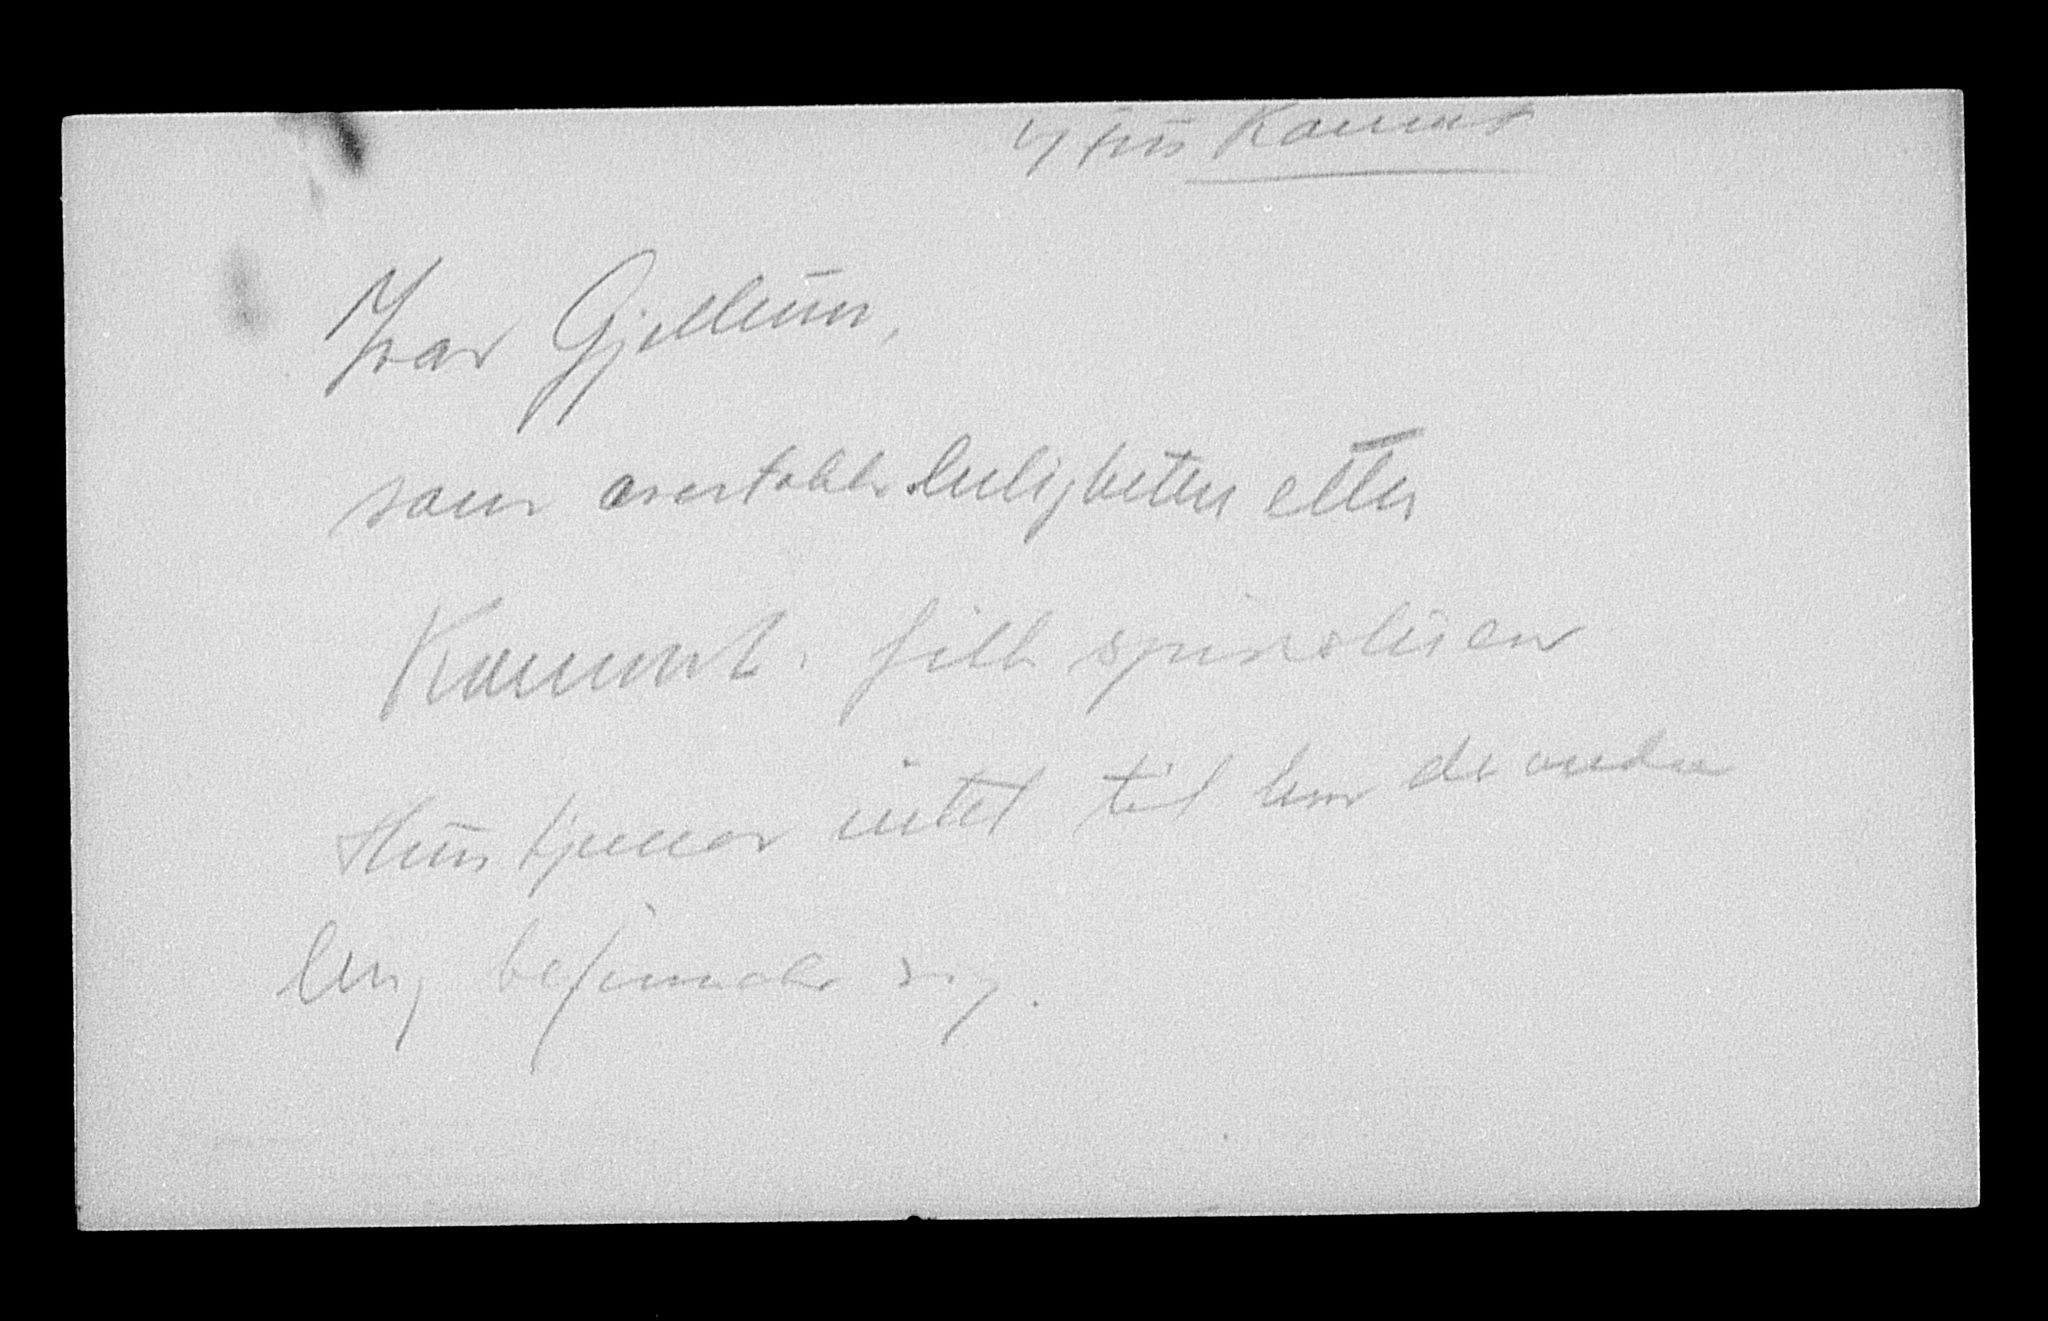 Kamint
Ivar Gjellum,
som overtok leiligheten etter
Kamint. fikk spisestuen
Hun kjenner intet til hvor de andre
ting befinner sig.